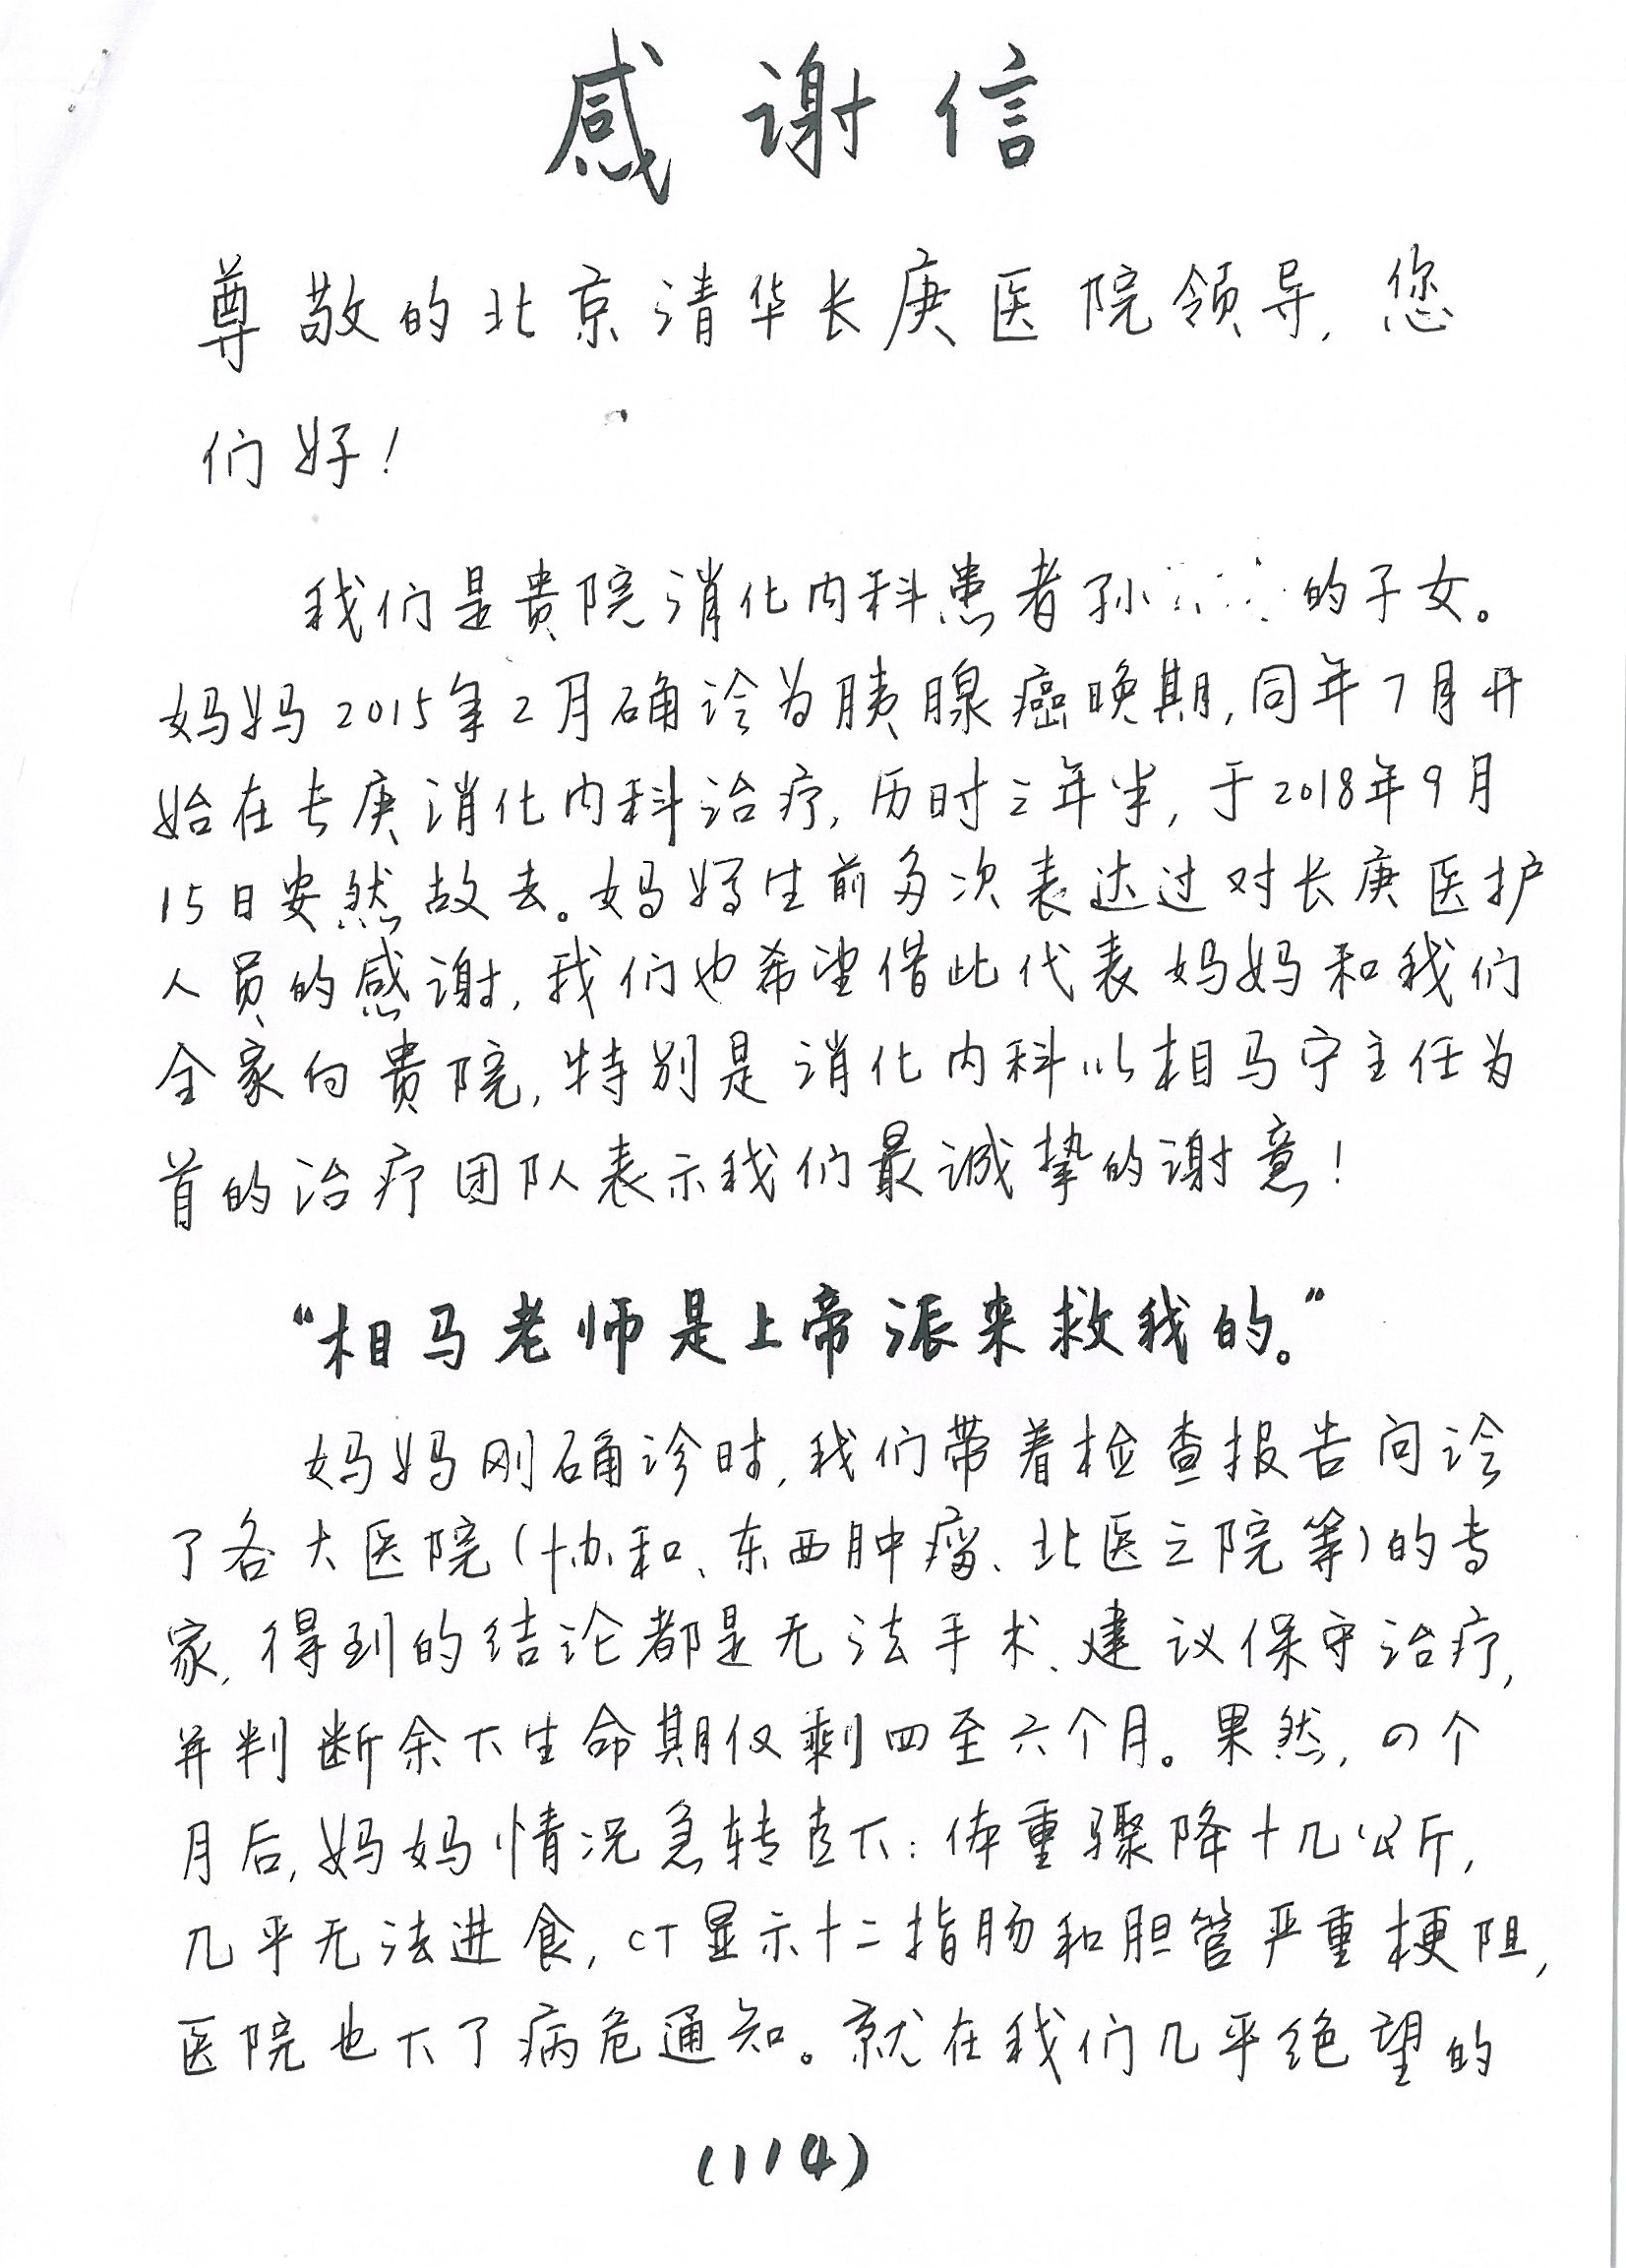 感谢信
尊敬的北京清华长庚医院领导,您
们好!
我们是贵院消化内科患者孙 的子女。
妈妈2015年2月确诊为胰腺癌晚期,同年7月开
始在长庚消化内科治疗,历时三年半,于2018年9月
15日安然故去。妈妈生前多次表达过对长庚医护
人员的感谢,我们也希望借此代表妈妈和我们
全家向贵院,特别是消化内科以相马宁主任为
首的治疗团队表示我们最诚挚的谢意!
“相马老师是上帝派来救我的。”
妈妈刚确诊时,我们带着检查报告问诊
了各大医院(协和、东西肿瘤、北医三院等)的专
家,得到的结论都是无法手术、建议保守治疗,
并判断余下生命期仅剩四至六个月。果然,四个
月后,妈妈情况急转直下:体重骤降十几公斤,
几乎无法进食,CT显示十二指肠和胆管严重梗阻,
医院也下了病危通知。就在我们几乎绝望的
(1/4)